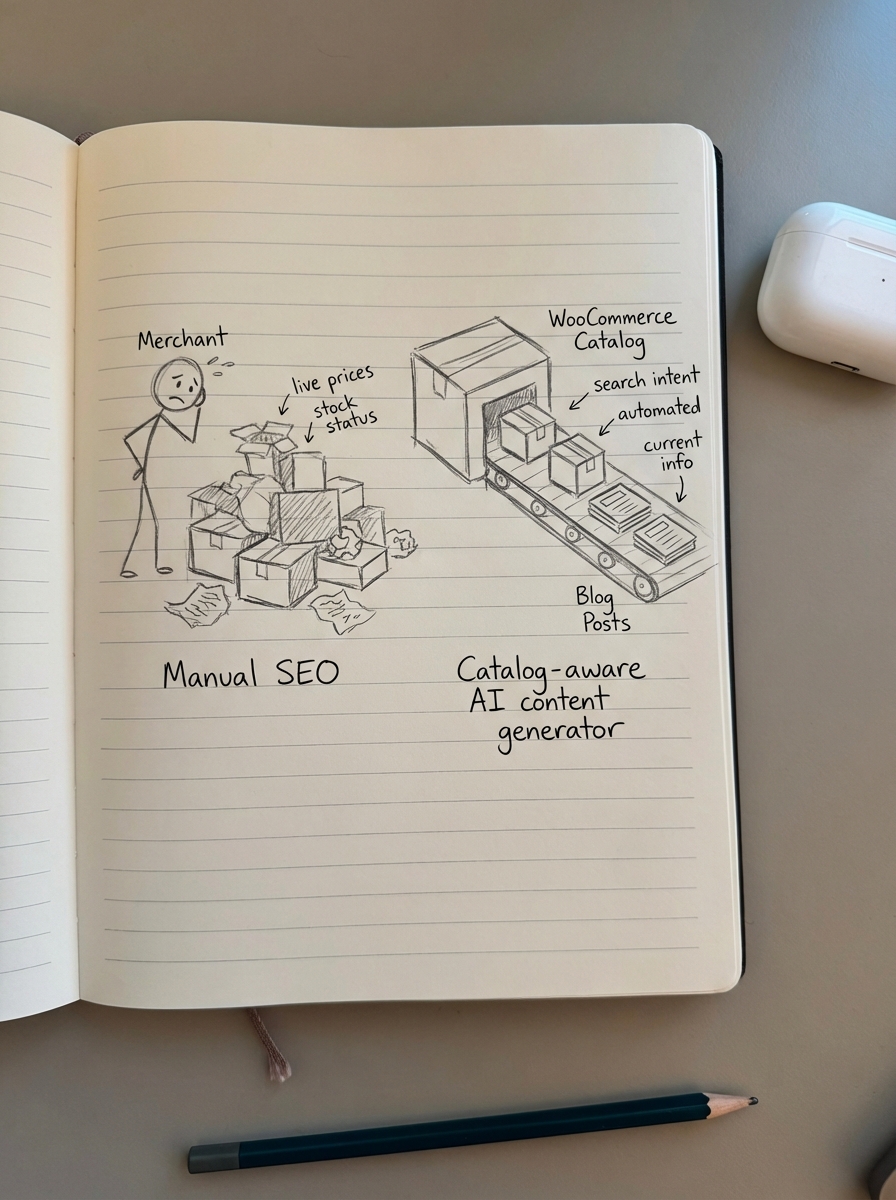 Merchant
live prices
stock
status
Manual SEO
WooCommerce
Catalog
search intent
automated
current
info
Blog
Posts
Catalog-aware
AI content
generator